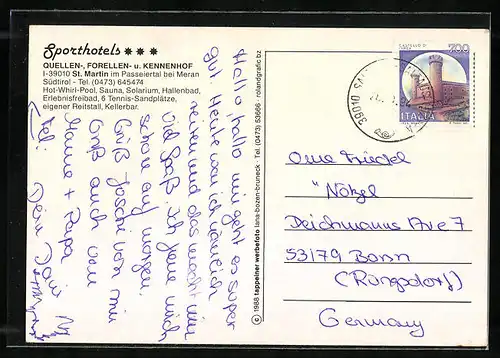 Sporthotels ✷✷✷
QUELLEN-, FORELLEN- u. KENNENHOF
I-39010 St. Martin im Passeiertal bei Meran
Südtirol - Tel. (0473) 645474
Hot-Whirl-Pool, Sauna, Solarium, Hallenbad,
Erlebnisfreibad, 6 Tennis-Sandplätze,
eigener Reitstall, Kellerbar.
Hallo, hallo mir geht es super
gut. Heute war ich
reiten und das macht mir
viel Spaß. Ich freue mich
schon auf morgen.
Grüß Joschi von mir
Gruß auch von
Mama + Papa
Dein
© 1988 tappeiner werbefoto lana-bozen-bruneck - Tel. (0473) 53666 - rolandgrafic bz
700
ITALIA
39010
Oma Friedel
Nötzel
Deichmanns Ave 7
53179 Bonn
(Rüngsdorf)
Germany